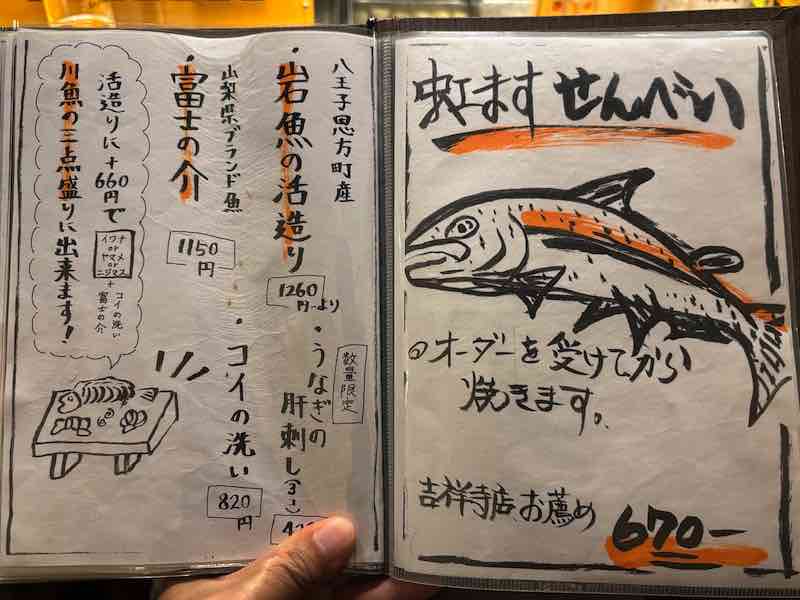 虹ます せんべい
◎オーダーを受けてから
焼きます。
吉祥寺店、お薦め
670ー
八王子恩方町産
・岩魚の活造り
1260
円より
数量限定
・うなぎの
肝刺し(3コ)
山梨県ブランド魚
・富士の介
1150
円
・コイの洗い
820
円
活造りに+660円で
イワナ
or
ヤマメ
or
ニジマス
+
コイの洗い
富士の介
川魚の三点盛りに出来ます!